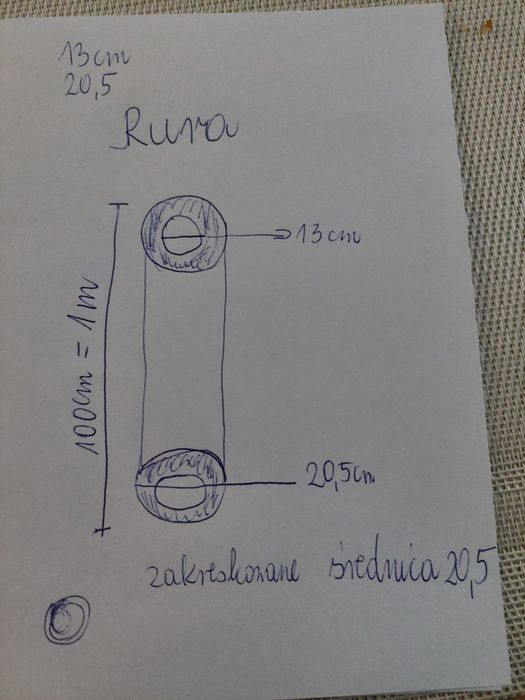 13cm
20,5
Rura
13cm
100cm = 1m
20,5cm
zakreskowane średnica 20,5